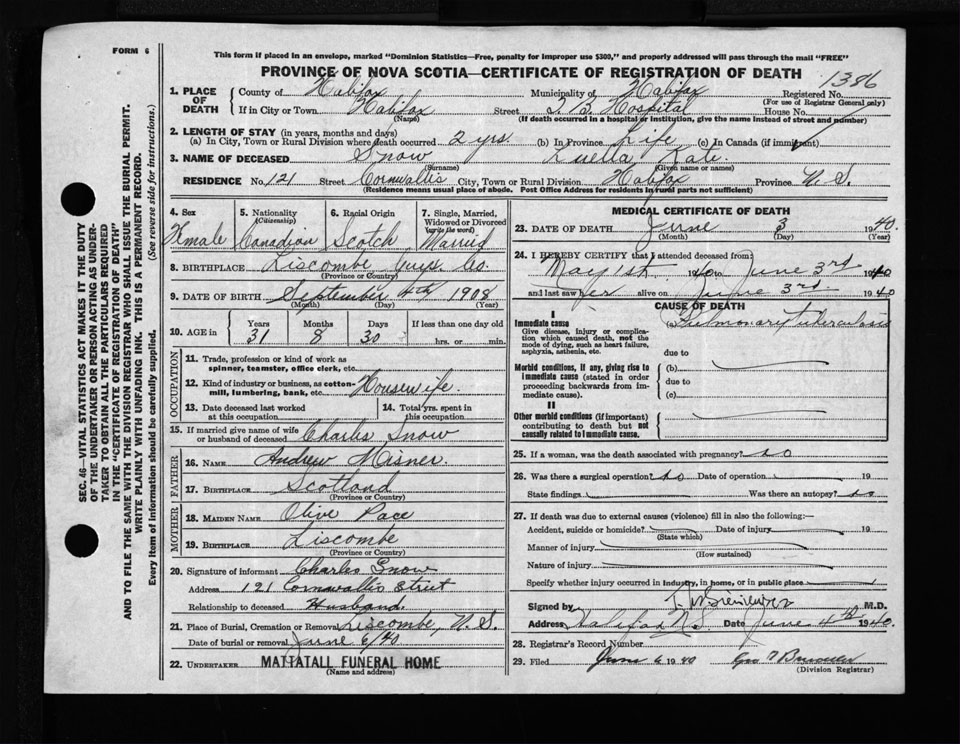 FORM 6
This form if placed in an envelope, marked "Dominion Statistics—Free, penalty for improper use $300," and properly addressed will pass through the mail "FREE"
PROVINCE OF NOVA SCOTIA—CERTIFICATE OF REGISTRATION OF DEATH
1386
1. PLACE OF DEATH County of Halifax Municipality of Halifax Registered No.
(For use of Registrar General only)
If in City or Town Halifax Street T.B. Hospital House No.
(Name) (If death occurred in a hospital or institution, give the name instead of street and number)
2. LENGTH OF STAY (in years, months and days)
(a) In City, Town or Rural Division where death occurred 2 yrs. (b) In Province Life (c) In Canada (if immigrant)
3. NAME OF DECEASED Snow Luella Kate
(Surname) (Given name or names)
RESIDENCE No. 121 Street Cornwallis City, Town or Rural Division Halifax Province N. S.
(Residence means usual place of abode. Post Office Address for residents in rural parts not sufficient)
SEC. 46—VITAL STATISTICS ACT MAKES IT THE DUTY
OF THE UNDERTAKER OR PERSON ACTING AS UNDER-
TAKER TO OBTAIN ALL THE PARTICULARS REQUIRED
IN THE "CERTIFICATE OF REGISTRATION OF DEATH"
AND TO FILE THE SAME WITH THE DIVISION REGISTRAR WHO SHALL ISSUE THE BURIAL PERMIT.
WRITE PLAINLY WITH UNFADING INK. THIS IS A PERMANENT RECORD.
Every item of Information should be carefully supplied. (See reverse side for instructions.)
4. Sex 5. Nationality (Citizenship) 6. Racial Origin 7. Single, Married, Widowed or Divorced (write the word)
Female Canadian Scotch Married
8. BIRTHPLACE Liscombe Guys. Co.
(Province or Country)
9. DATE OF BIRTH September 4th 1908
(Month) (Day) (Year)
10. AGE in Years Months Days If less than one day old
31 8 30 hrs. or min.
OCCUPATION
11. Trade, profession or kind of work as
spinner, teamster, office clerk, etc.
12. Kind of industry or business, as cotton-
mill, lumbering, bank, etc. Housewife.
13. Date deceased last worked at this occupation 14. Total yrs. spent in this occupation
15. If married give name of wife
or husband of deceased Charles Snow
FATHER
16. NAME Andrew Misner
17. BIRTHPLACE Scotland
(Province or Country)
MOTHER
18. MAIDEN NAME Olive Pace
19. BIRTHPLACE Liscombe
(Province or Country)
20. Signature of informant Charles Snow
Address 121 Cornwallis Street
Relationship to deceased Husband.
21. Place of Burial, Cremation or Removal Liscombe, N. S.
Date of burial or removal June 6/40
22. UNDERTAKER MATTATALL FUNERAL HOME
(Name and address)
MEDICAL CERTIFICATE OF DEATH
23. DATE OF DEATH June 3 1940.
(Month) (Day) (Year)
24. I HEREBY CERTIFY that I attended deceased from:
May 1st 1940 to June 3rd 1940
and last saw her alive on June 3rd. 1940
CAUSE OF DEATH
I
Immediate cause (a) Pulmonary tuberculosis
Give disease, injury or complica-
tion which caused death, not the
mode of dying, such as heart failure,
asphyxia, asthenia, etc.
due to
Morbid conditions, if any, giving rise to
immediate cause (stated in order
proceeding backwards from im-
mediate cause).
(b)
due to
(c)
II
Other morbid conditions (if important)
contributing to death but not
causally related to immediate cause.
25. If a woman, was the death associated with pregnancy? no
26. Was there a surgical operation? no Date of operation 19
State findings Was there an autopsy? no
27. If death was due to external causes (violence) fill in also the following:—
Accident, suicide or homicide? Date of injury 19
(State which)
Manner of injury
(How sustained)
Nature of injury
Specify whether injury occurred in industry, in home, or in public place
Signed by M.D.
Address Halifax N.S. Date June 4th 1940.
28. Registrar's Record Number
29. Filed June 6 1940 Geo
(Division Registrar)